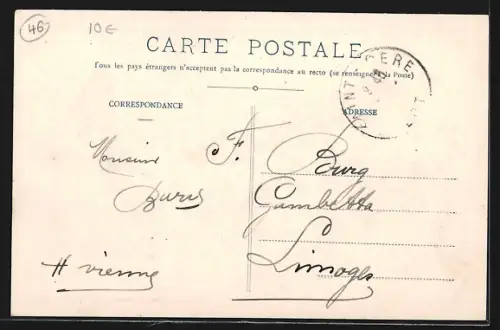 46
10€
CARTE POSTALE
Tous les pays étrangers n'acceptent pas la correspondance au recto (se renseigner à la Poste)
CORRESPONDANCE
ADRESSE
Monsieur F.
Bourg
Gambetta
Limoges
Hte vienne